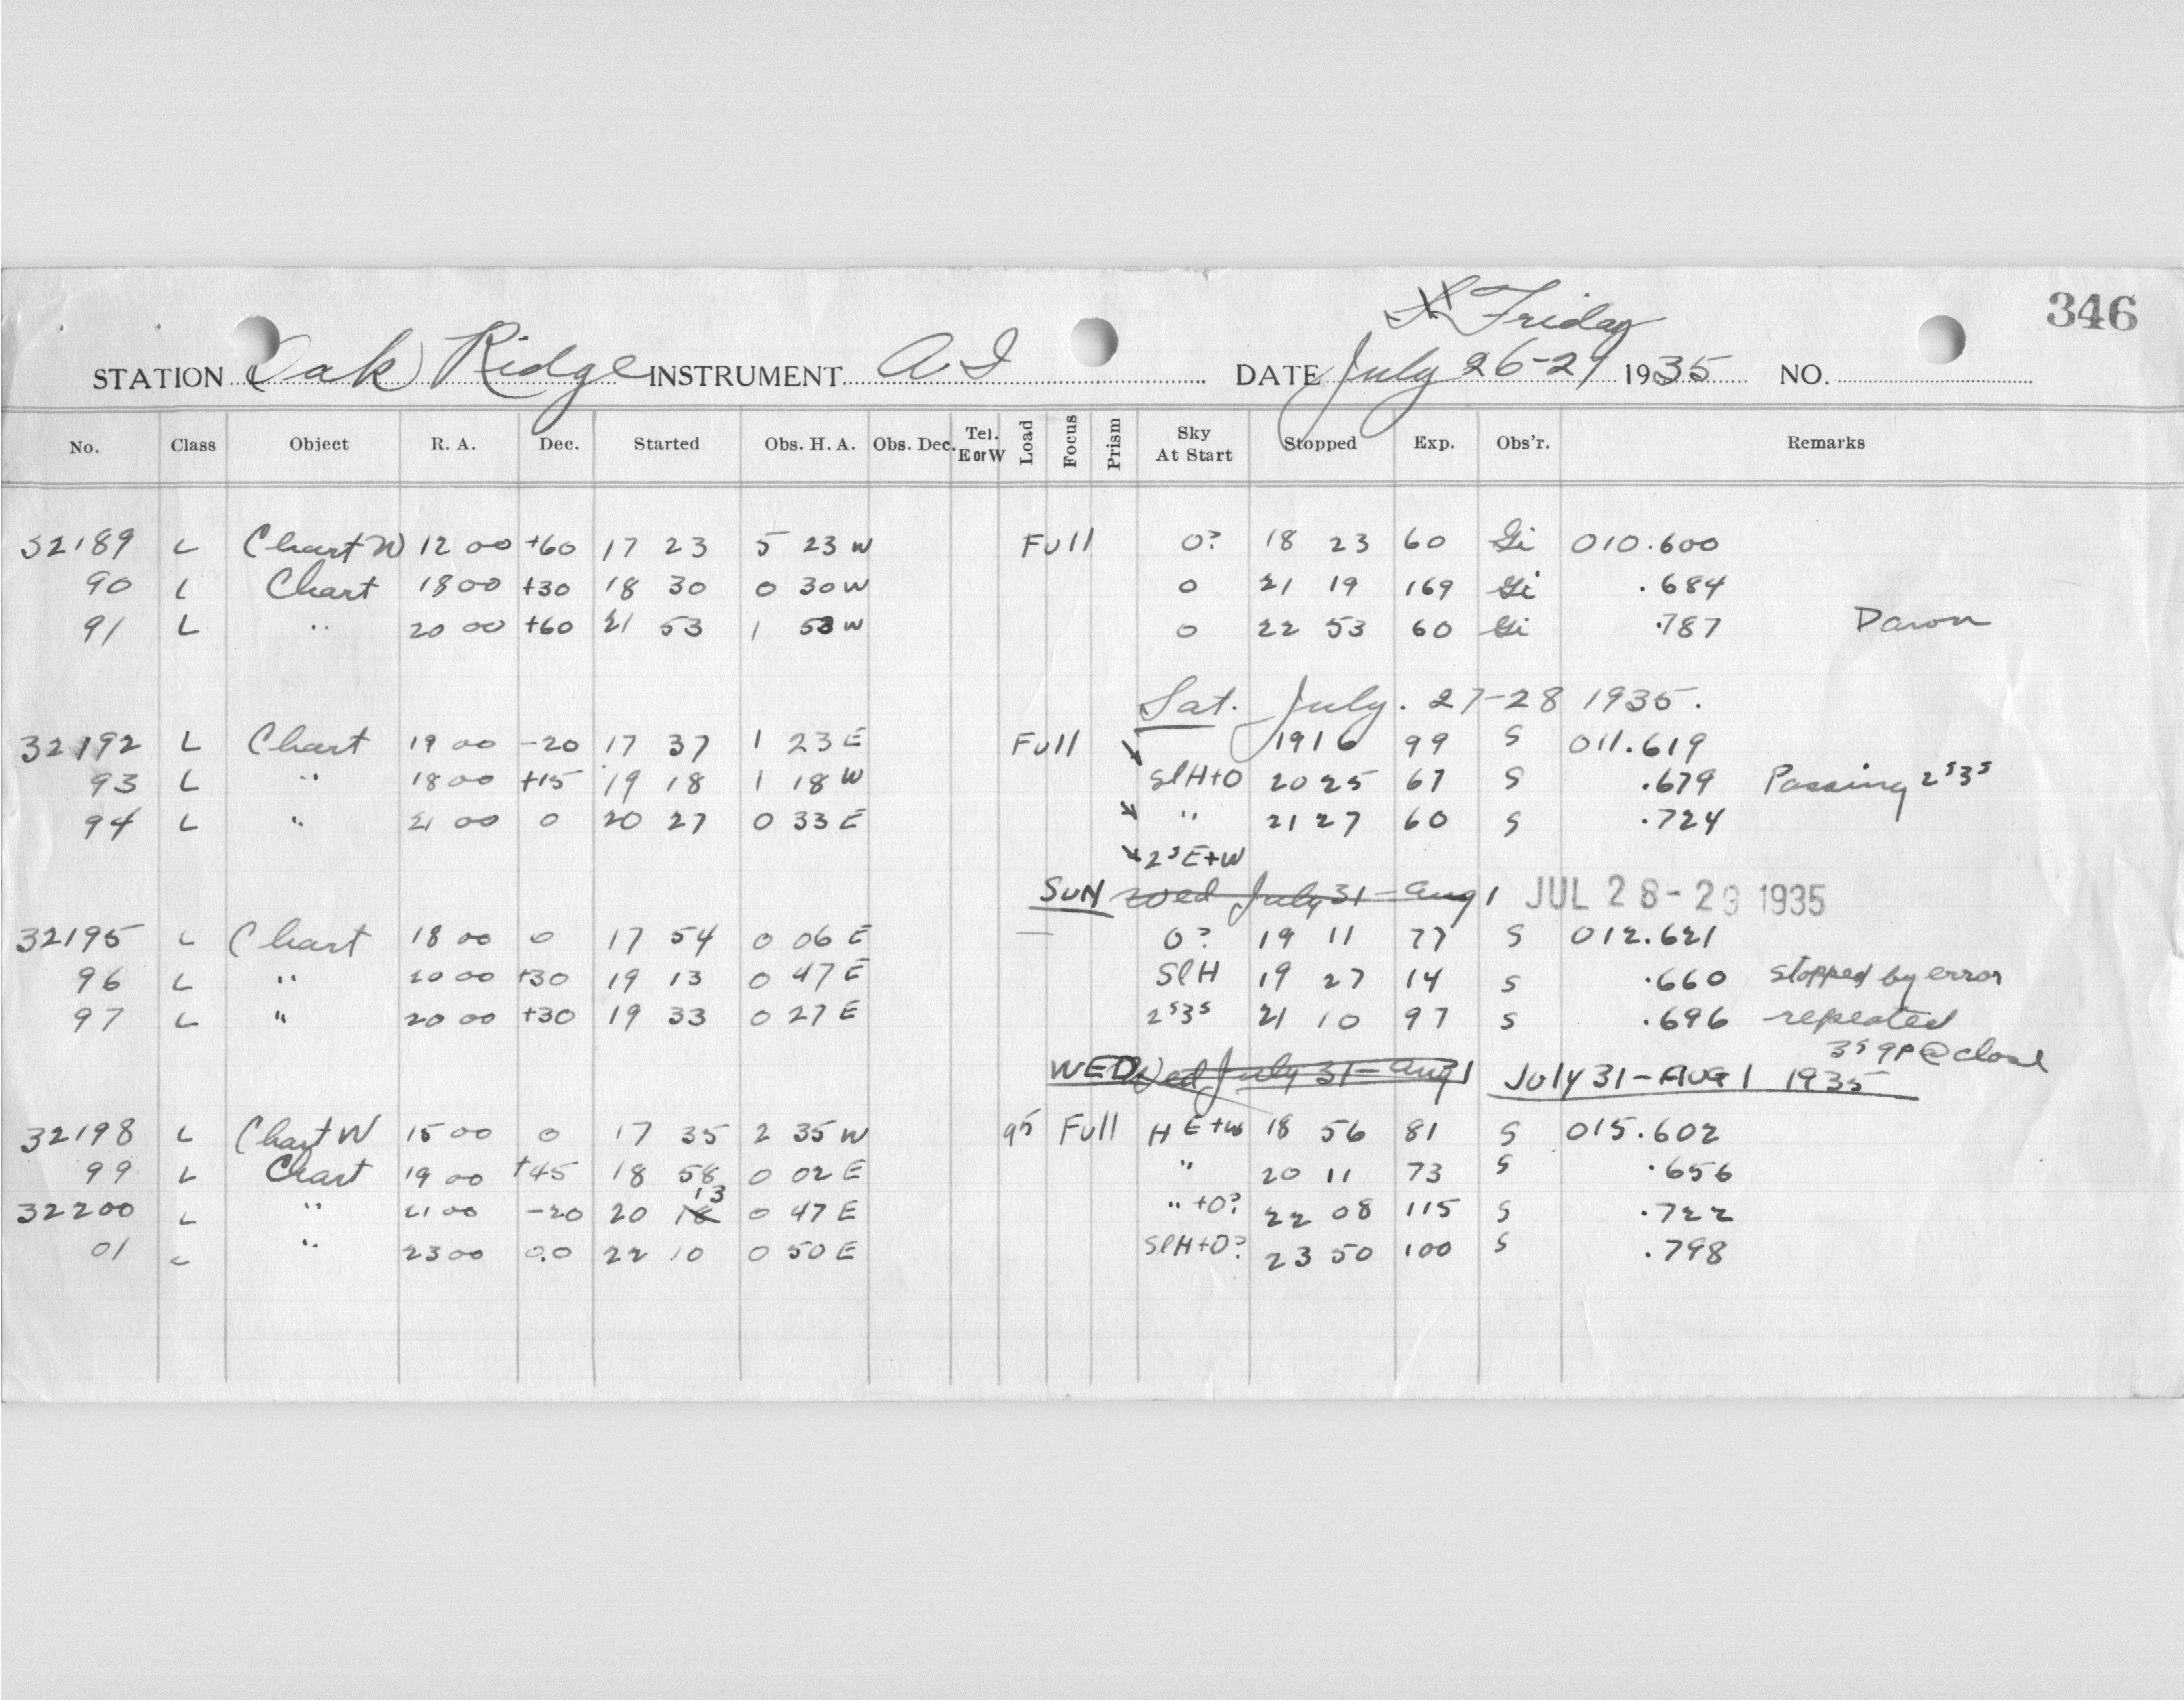 346
Friday
STATION Oak Ridge INSTRUMENT AI DATE July 26-27 1935 NO.
No. Class Object R. A. Dec. Started Obs. H. A. Obs. Dec. Tel. E or W Load Focus Prism Sky At Start Stopped Exp. Obs'r. Remarks
32189 L Chart W 12 00 +60 17 23 5 23 W Full 0? 18 23 60 Gi 010.600
90 L Chart 18 00 +30 18 30 0 30 W 0 21 19 169 Gi .684
91 L " 20 00 +60 21 53 1 53 W 0 22 53 60 Gi .787 Dawn
Sat. July. 27-28 1935.
32192 L Chart 19 00 -20 17 37 1 23 E Full 19 16 99 S 011.619
93 L " 18 00 +15 19 18 1 18 W SlH+0 20 25 67 S .679 Passing 2s3s
94 L " 21 00 0 20 27 0 33 E " 21 27 60 S .724
2s E+W
SUN Wed July 31 - Aug 1 JUL 28-29 1935
32195 L Chart 18 00 0 17 54 0 06 E — 0? 19 11 77 S 012.621
96 L " 20 00 +30 19 13 0 47 E SlH 19 27 14 S .660 stopped by error
97 L " 20 00 +30 19 33 0 27 E 2s3s 21 10 97 S .696 repeated
3s 9P @ close
WED Wed July 31 - Aug 1 July 31 - AUG 1 1935
32198 L Chart W 15 00 0 17 35 2 35 W 95 Full H E+W 18 56 81 S 015.602
99 L Chart 19 00 +45 18 58 0 02 E " 20 11 73 S .656
32200 L " 21 00 -20 20 13 0 47 E " +0? 22 08 115 S .722
01 L " 23 00 0.0 22 10 0 50 E SlH+0? 23 50 100 S .798